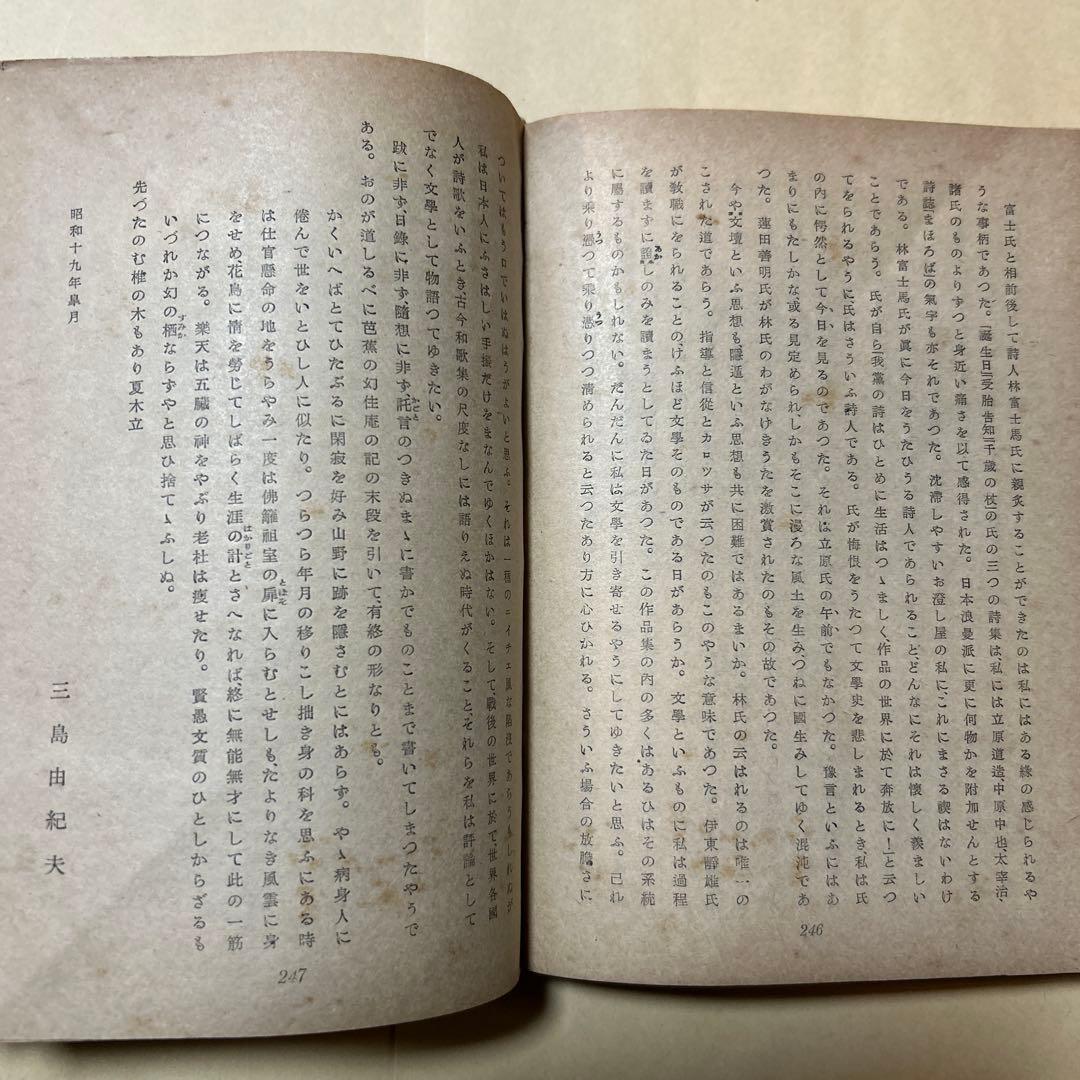 富士氏と相前後して詩人林富士馬氏に親炙することができたのは私にはある緣の感じられるや
うな事柄であつた。「誕生日」「受胎告知」「千歳の杖」の氏の三つの詩集は、私には立原道造、中原中也、太宰治、
諸氏のものよりずつと身近い痛さを以て感得された。日本浪曼派に更に何物かを附加せんとする
詩誌「まほろば」の氣宇も亦それであつた。沈滯しやすいお澄し屋の私に、これにまさる禊はないわけ
である。林富士馬氏が眞に今日をうたひうる詩人であられること、どんなにそれは懷しく羨ましい
ことであらう。氏が自ら「我黨の詩はひとめに生活はつゝましく、作品の世界に於て奔放に!」と云つ
てをられるやうに氏はさういふ詩人である。氏が悔恨をうたつて文學史を悲しまれるとき、私は氏
の內に愕然として今日を見るのであつた。それは立原氏の午前でもなかつた。豫言といふにはあ
まりにもたしかな或る見定められ、しかもそこに漫ろな風土を生み、つねに國生みしてゆく混沌であ
つた。蓮田善明氏が林氏のわがなけきうたを激賞されたのもその故であつた。
今や文壇といふ思想も、隱遁といふ思想も共に困難ではあるまいか。林氏の云はれるのは唯一の
こされた道であらう。指導と信從とカロッサが云つたのもこのやうな意味であつた。伊東靜雄氏
が敎職にをられることの、けふほど文學そのものである日があらうか。文學といふものに私は過程
を讀まずに證しのみを讀まうとしてゐた日があつた。この作品集の內の多くはあるひはその系統
に屬するものかもしれない。だんだんに私は文學を引き寄せるやうにしてゆきたいと思ふ。己れ
より乘り憑つて乘り憑りつつ淸められると云つたあり方に心ひかれる。さういふ場合の放膽さに
246
ついてはもう口でいはぬはうがよいと思ふ。それは一種のニイチェ風な陷穽であらうもしれぬが
私は日本人にふさはしい手振だけをまなんでゆくほかはない。そして戰後の世界に於て、世界各國
人が詩歌をいふとき古今和歌集の尺度なしには語りえぬ時代がくること、それらを私は評論として
でなく文學として物語つてゆきたい。
跋に非ず、目錄に非ず、隨想に非ず託言のつきぬまゝに書かでものことまで書いてしまつたやうで
ある。おのが道しるべに芭蕉の幻住庵の記の末段を引いて有終の形なりとも。
かくいへばとてひたぶるに閑寂を好み山野に跡を隱さむとにはあらず。やゝ病身人に
倦んで世をいとひし人に似たり。つらつら年月の移りこし拙き身の科を思ふにある時
は仕官懸命の地をうらやみ一度は佛籬祖室の扉に入らむとせしも、たよりなき風雲に身
をせめ、花鳥に情を勞じてしばらく生涯の計とさへなれば終に無能無才にして此の一筋
につながる。樂天は五臟の神をやぶり老杜は瘦せたり。賢愚文質のひとしからざるも
いづれか幻の栖ならずやと思ひ捨てゝふしぬ。
先づたのむ椎の木もあり夏木立
昭和十九年皐月
三島由紀夫
247